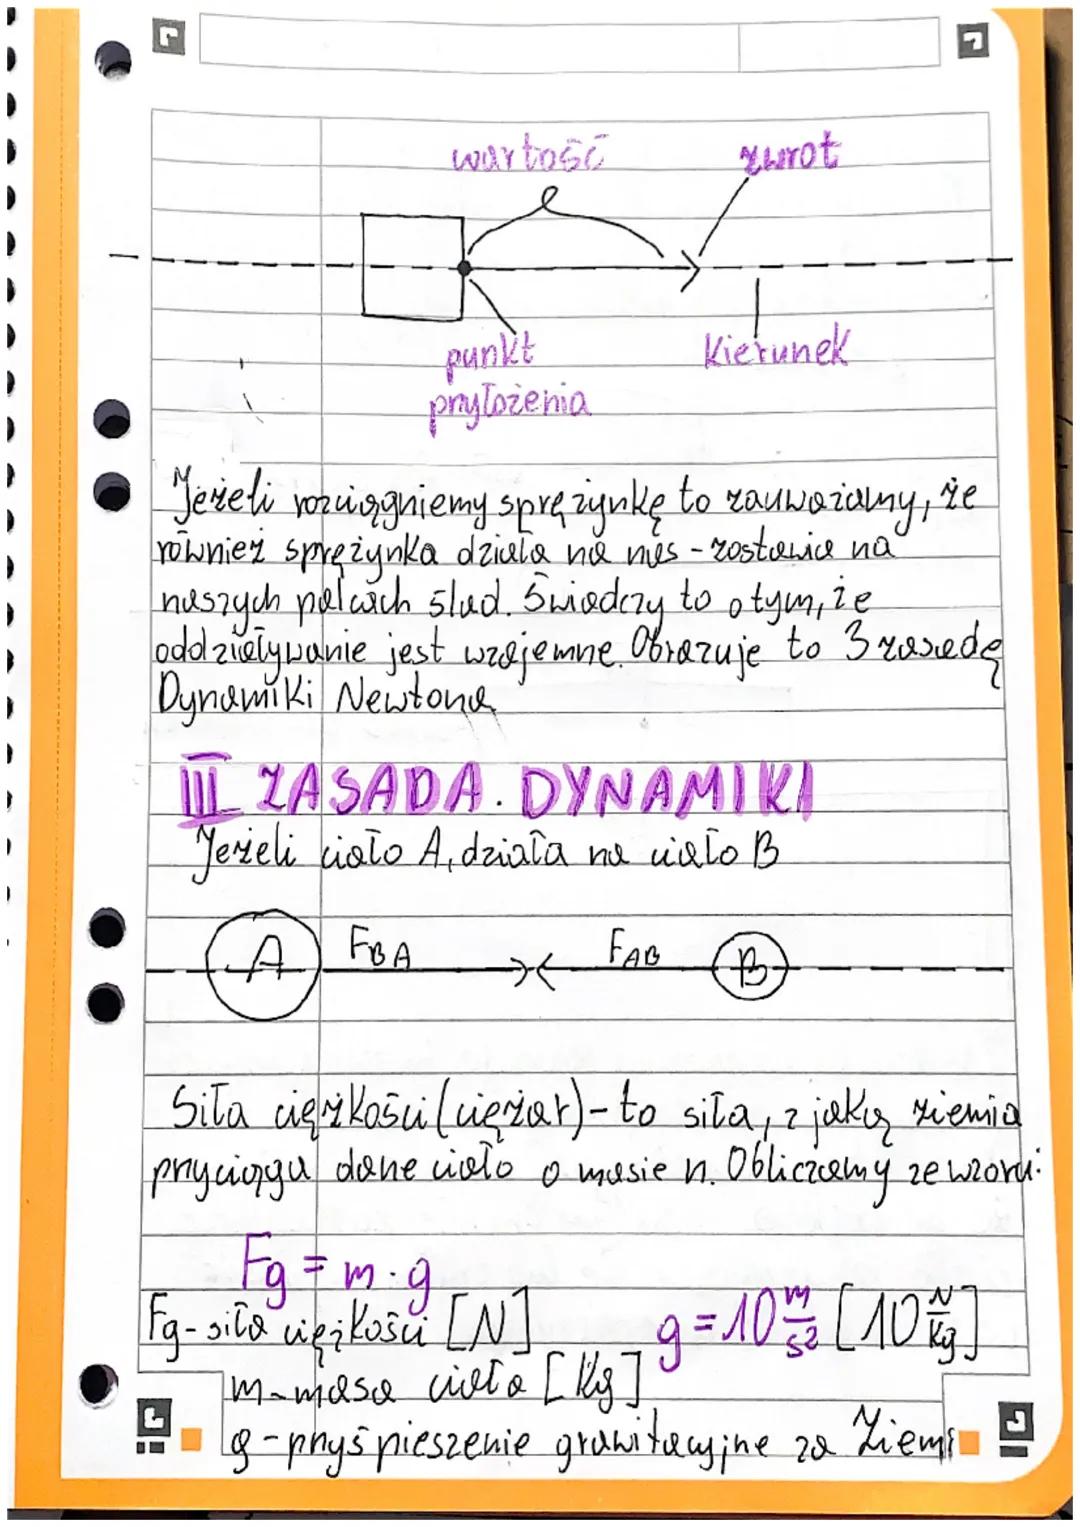 wartość zwrot
punkt kierunek
przyłożenia
Jeżeli rozciągniemy sprężynkę to zauważamy, że
również sprężynka działa na nas - zostawia na
naszych palcach ślad. Świadczy to o tym, że
oddziaływanie jest wzajemne. Obrazuje to 3 zasadę
Dynamiki Newtona
III ZASADA. DYNAMIKI
Jeżeli ciało A, działa na ciało B
A FBA FAB B
Siła ciężkości (ciężar) - to siła, z jaką ziemia
przyciąga dane ciało o masie n. Obliczamy ze wzoru:
Fg = m · g
Fg - siła ciężkości [N] g = 10 m/s² [10 N/kg]
m - masa ciała [kg]
g - przyśpieszenie grawitacyjne za Ziemi